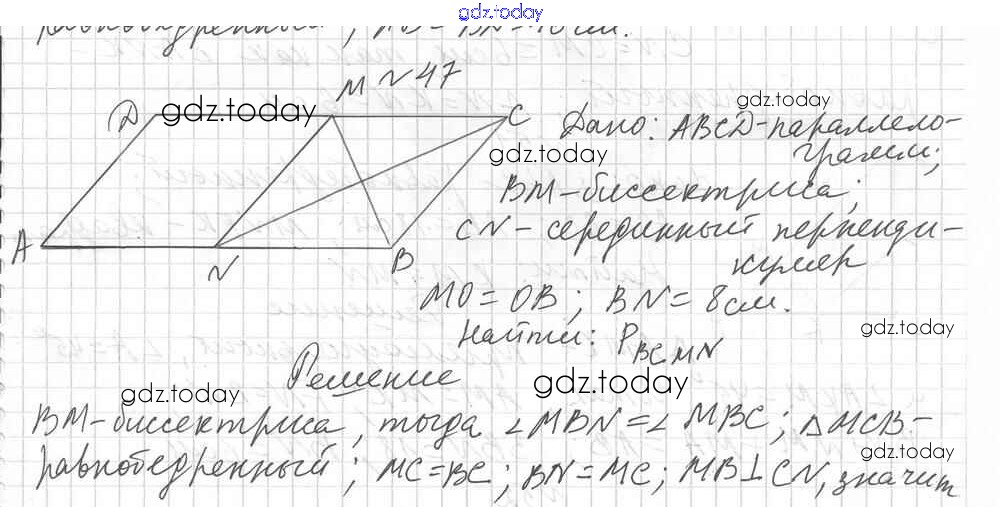 gdz.today
равнобедренный; = BN = см.
№47
D gdz.today M C
A N B
gdz.today
Дано: ABCD-параллело-
gdz.today
грамм;
BM-биссектриса;
CN-серединный перпенди-
куляр
MO=OB; BN=8см.
gdz.today
Найти: P BCMN
Решение
gdz.today gdz.today
BM-биссектриса, тогда ∠MBN=∠MBC; △MCB-
gdz.today
равнобедренный; MC=BC; BN=MC; MB⊥CN, значит